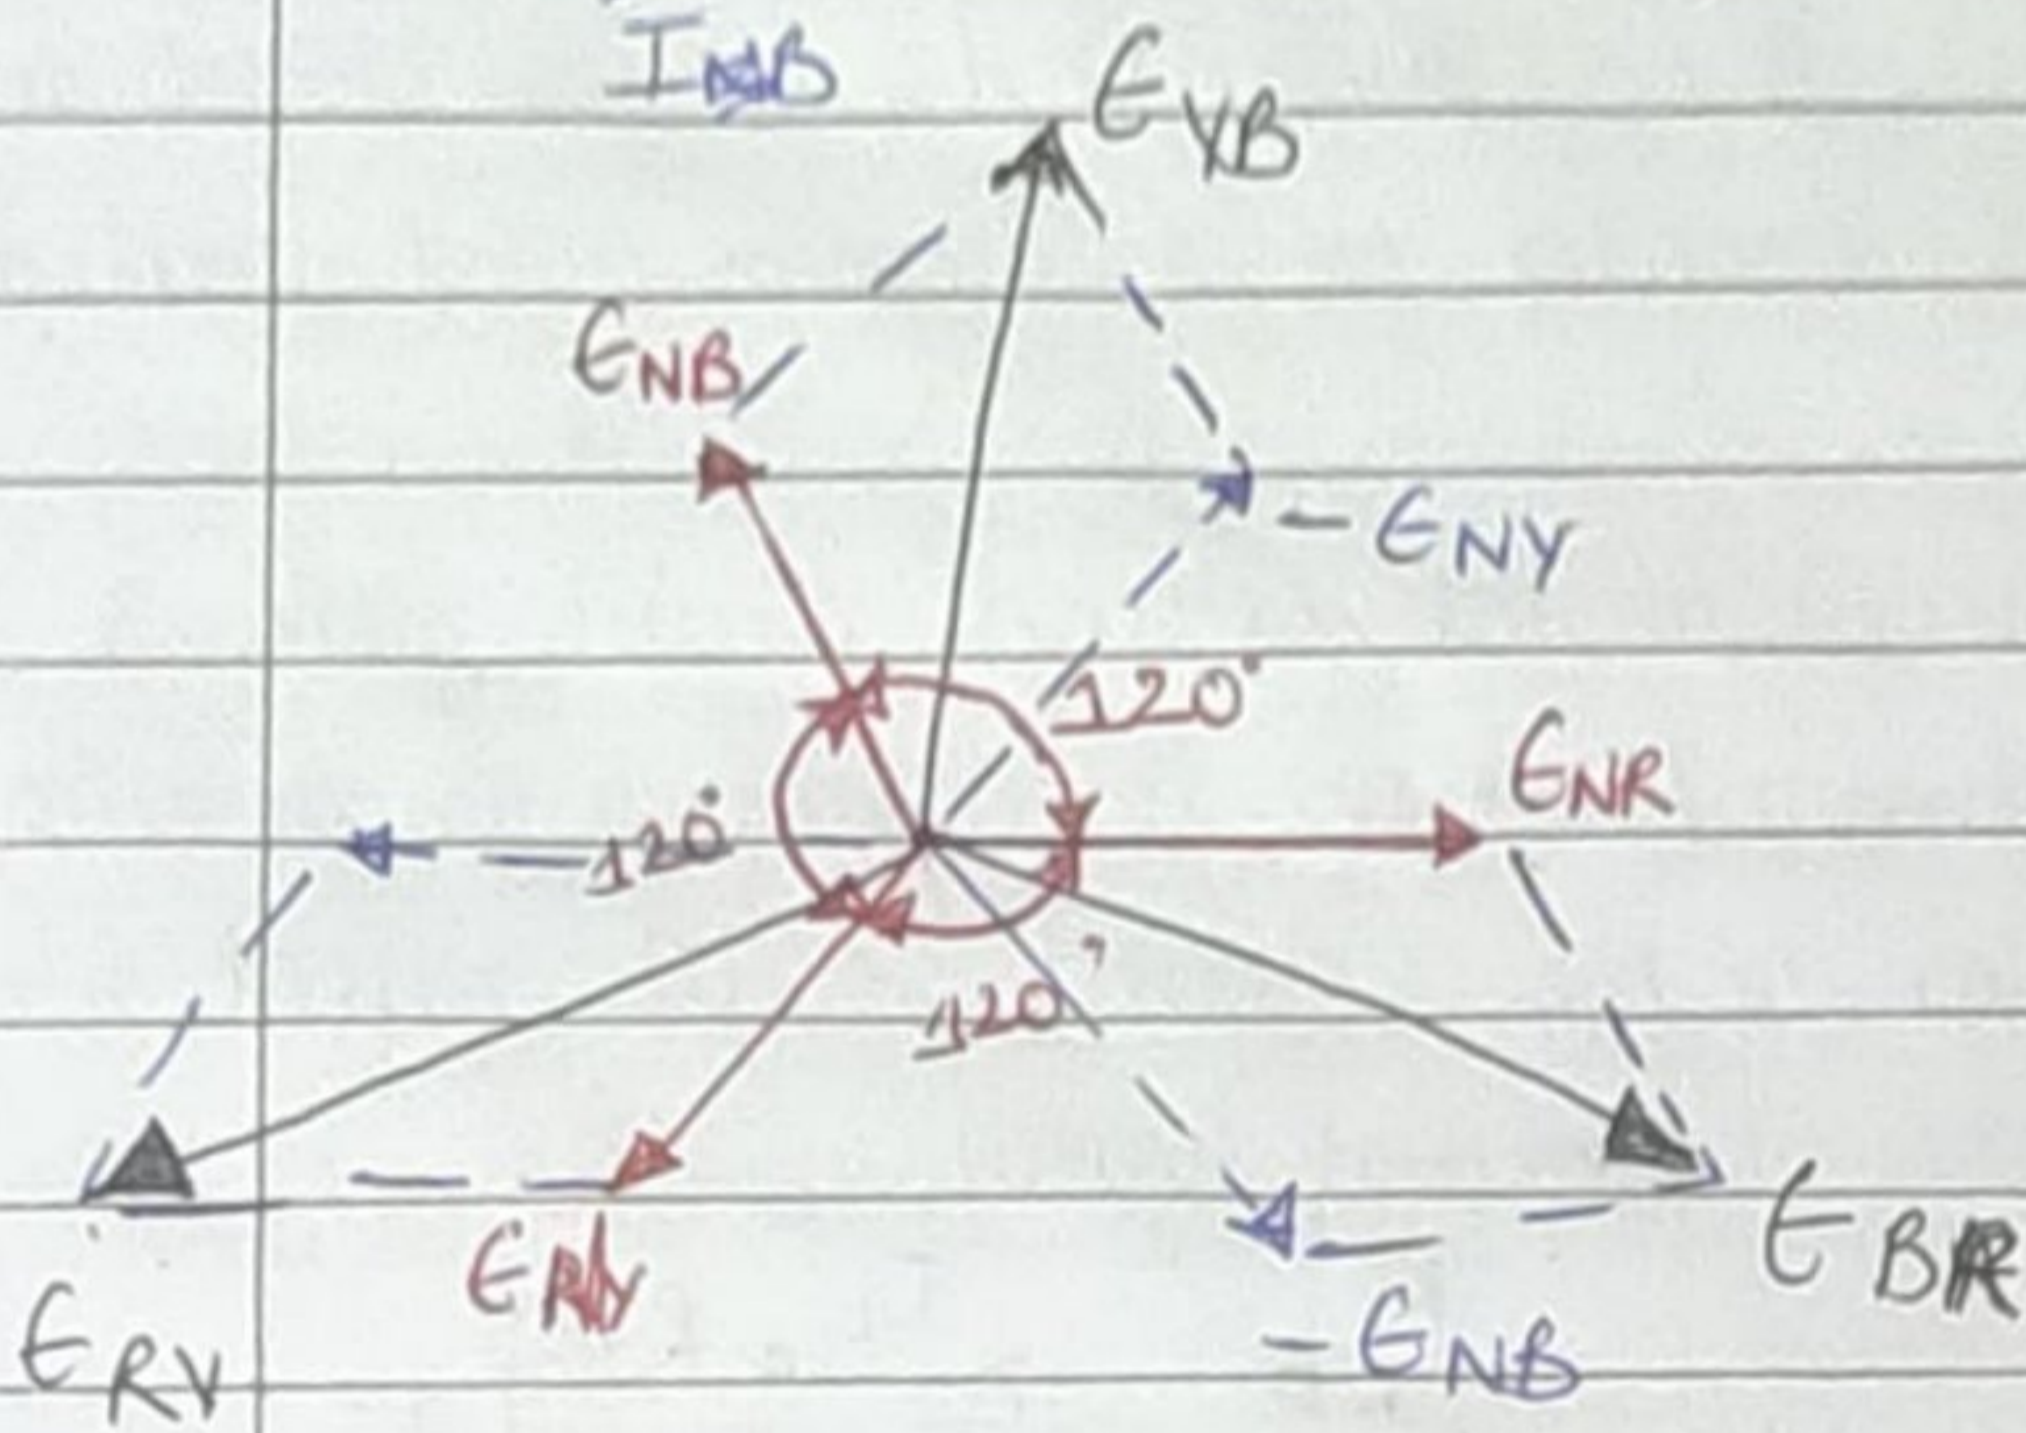 I_NB
E_YB
E_NB
- E_NY
120°
E_NR
120°
120°
E_NY
- E_NB
E_BR
E_RY